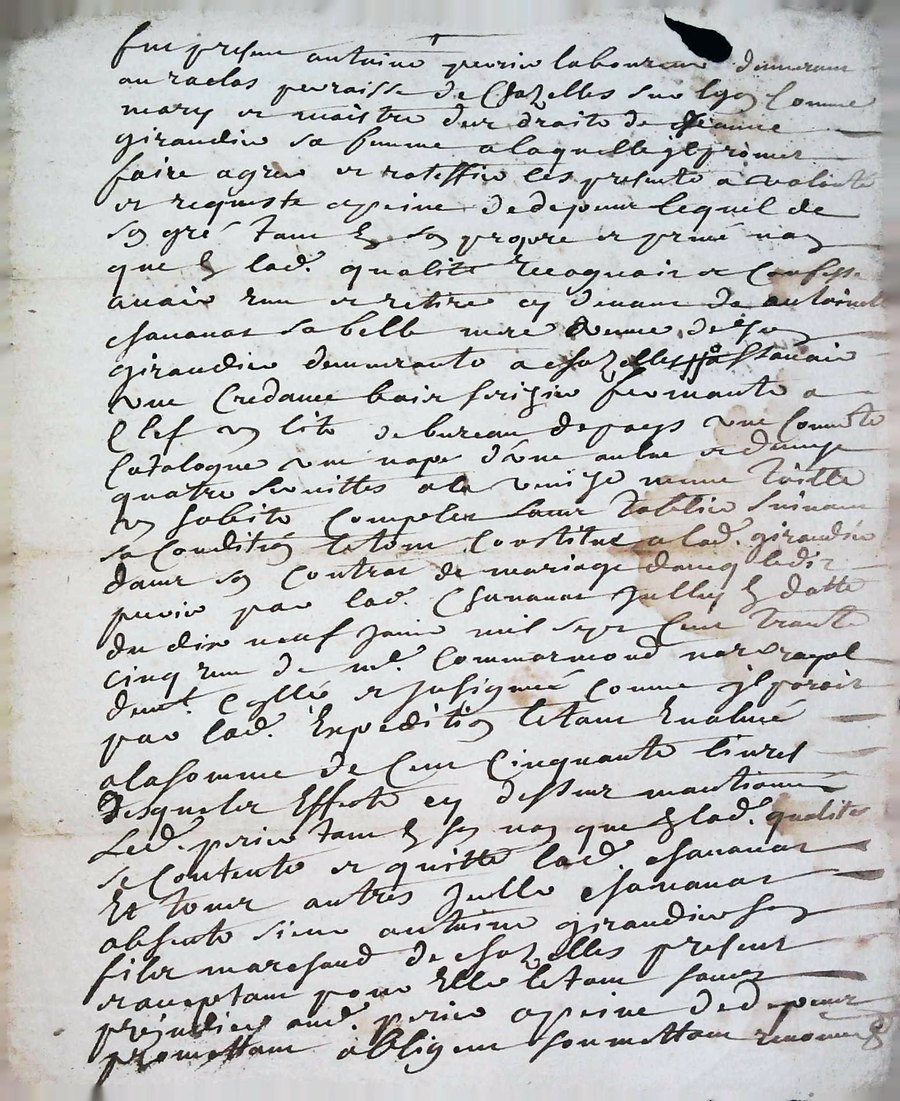 fut present antoine perrin laboureur demeurant
au raclas perroisse de Chazelles sur lyon comme
mary et maistre des droits de Jeanne
girandin sa femme a laquelle jl promet
faire agreer et ratiffier les presente a volonté
et requiste a peine de depens lequel de
son gré tant en son propre et privé nom
que en lad. qualité recognoit et confesse
avoir reçu et retire cy devant de antoinette
chananat sa belle mere veuve de
girandin demeurante a chazelles sçavoir
une Credance bois serizier fermante a
Clef un lits de bureau de pays une Couverte
Catalogne une nape d'une aulne et demye
quatre serviettes a la venize neuve
un habits complet suivant
sa Condition le tout Constitué a lad. girandin
dans son Contrat de mariage avecq ledit
perrin par lad. Chananat en datte
du dix neuf janvier mil sept Cent trante
cinq reçu de me. Commarmond nore royal
dument Cellé et jnsigniné comme jl paroit
par lad. Expedition le tout Evalué
a la somme de Cent Cinquante livres
desquels Effects cy dessus mantionnés
Led. perrin tant en son nom que en lad. qualites
se Contente et quitte lad. chananat
Et tous autres jcelle chananat
absente sieur antoine girandin son
fils marchand de chazelles present
et aceptant pour Elle le tout sans
prejudice aud. perrin a peine de depens
promettant obligeant soumettant renonçant &